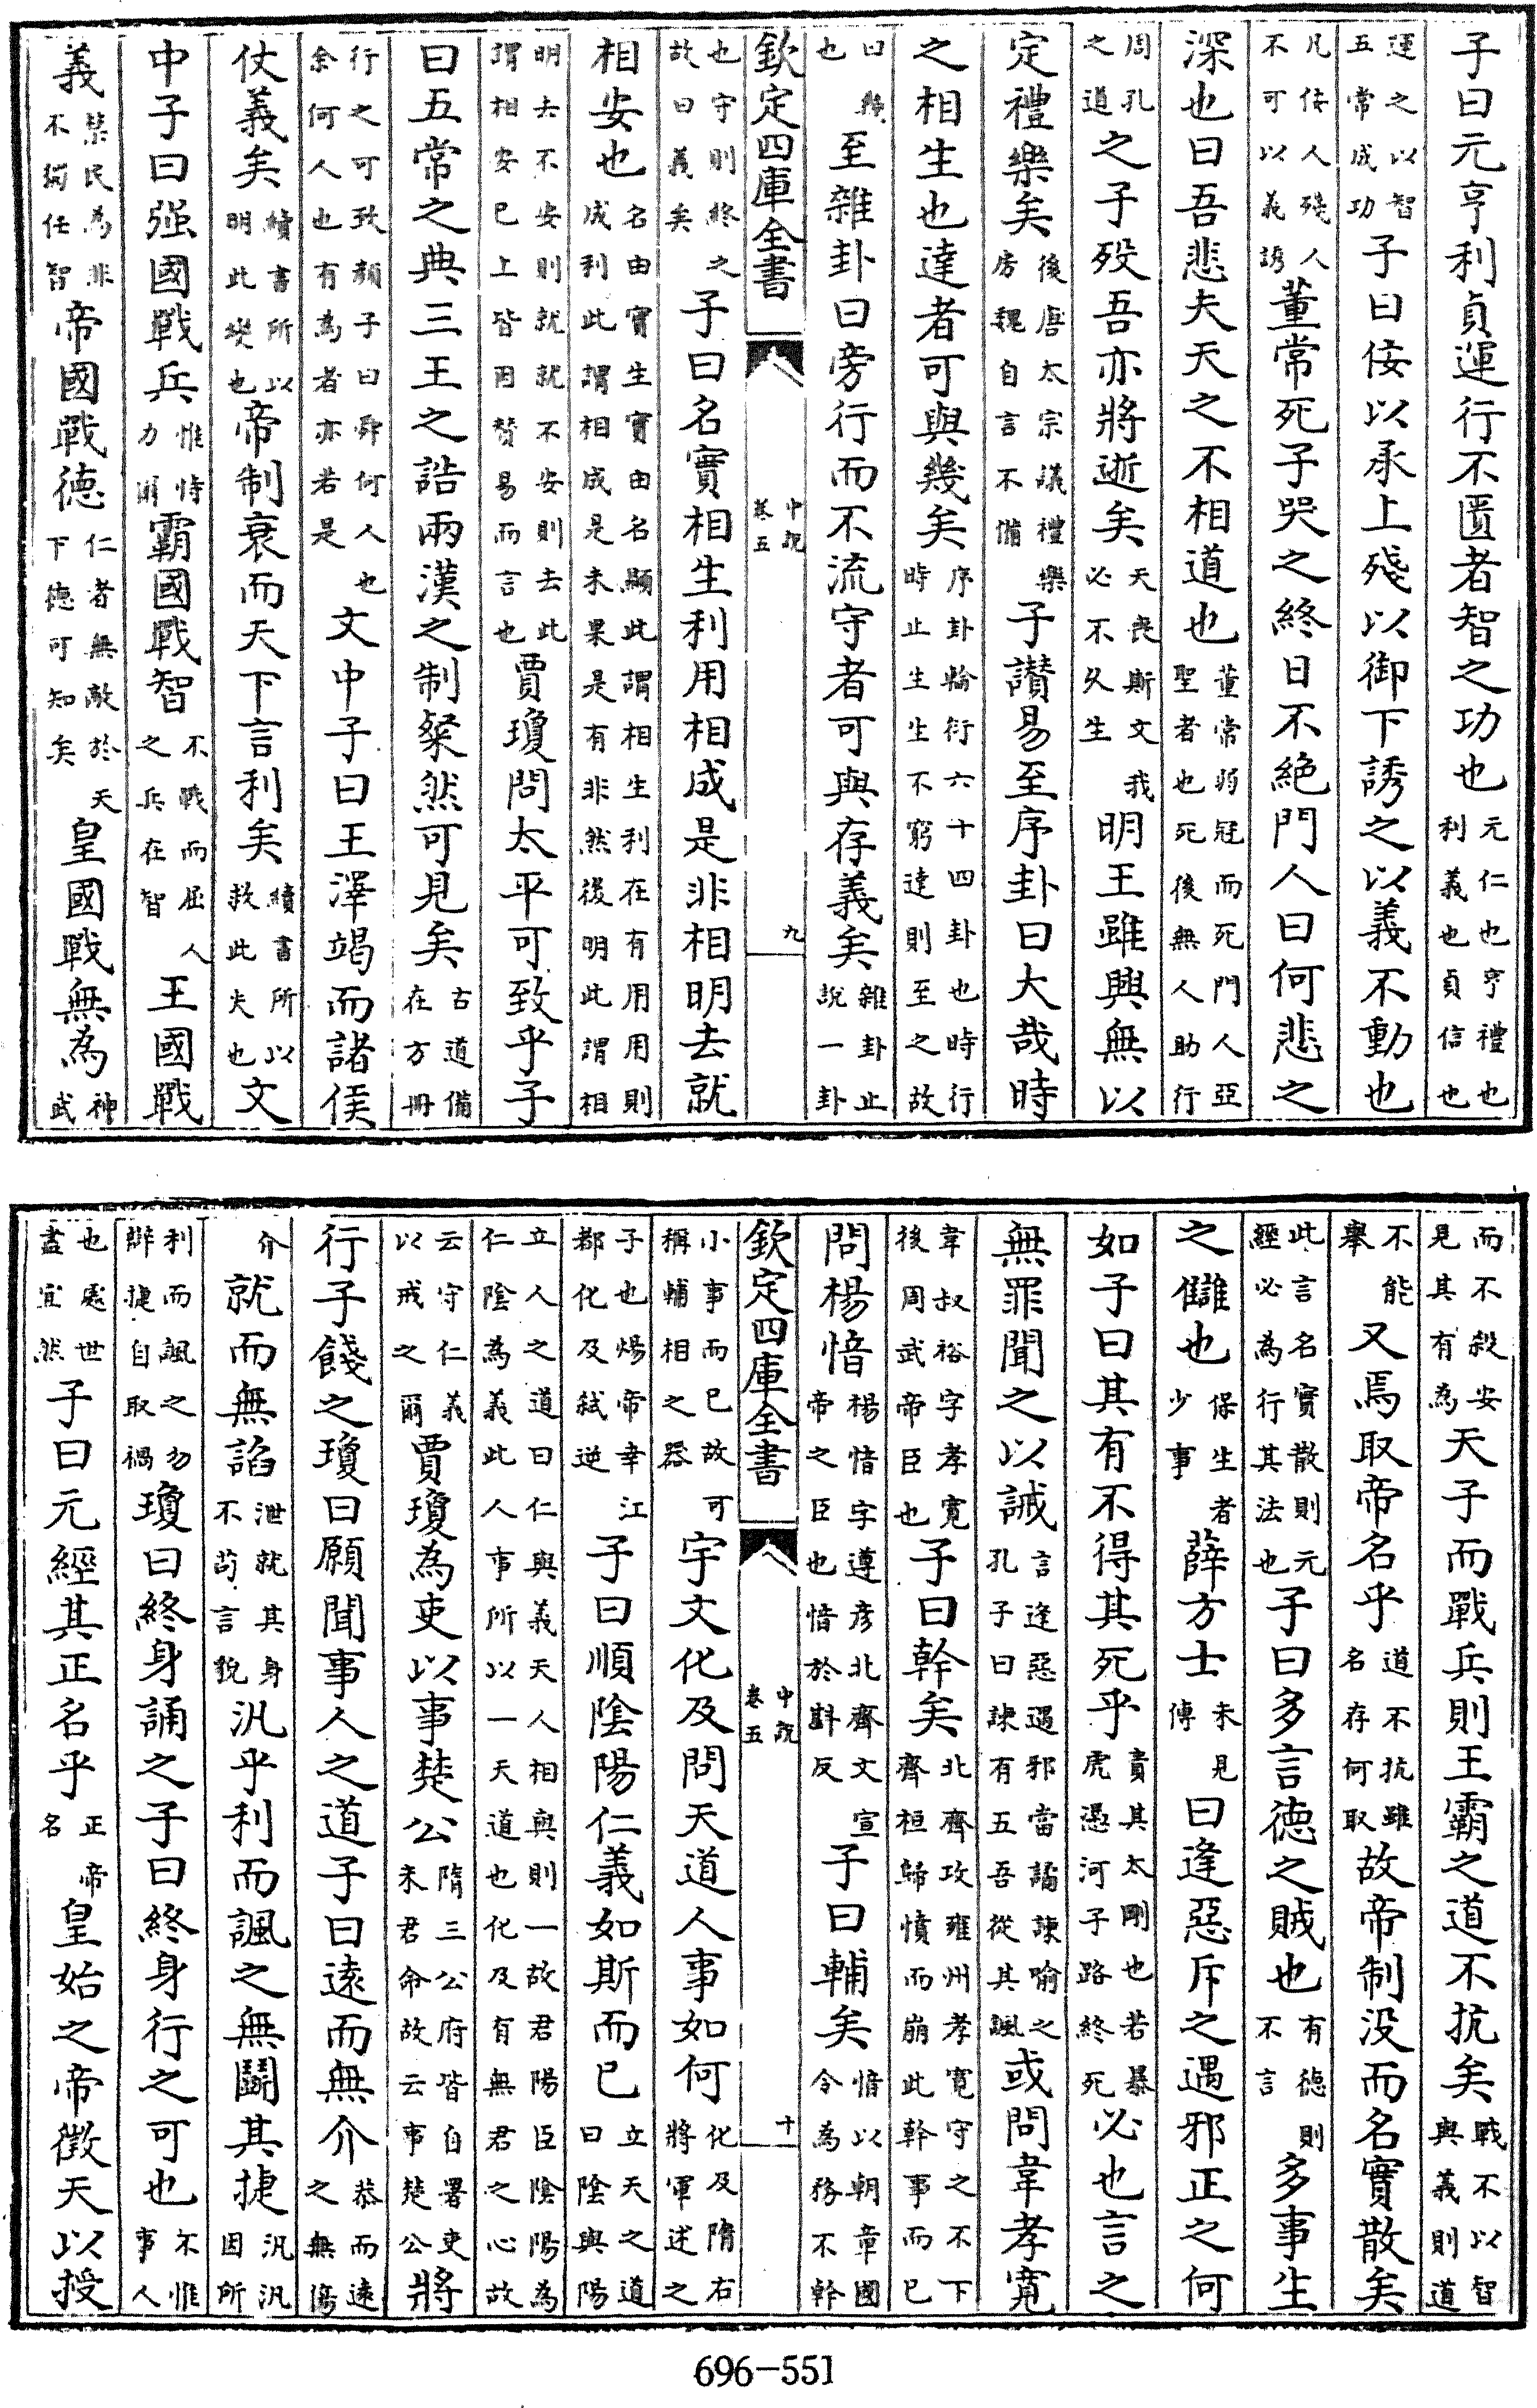 子曰元亨利貞運行不匱者智之功也元仁也亨禮也利義也貞信也
運之以智五常成功子曰佞以承上殘以御下誘之以義不動也
凡佞人殘人不可以義誘董常死子哭之終日不絶門人曰何悲之
深也曰吾悲夫天之不相道也董常弱冠而死門人亞聖者也死後無人助行
周孔之道之子殁吾亦將逝矣天喪斯文我必不久生明王雖興無以
定禮樂矣後唐太宗議禮樂房魏自言不備子讃易至序卦曰大哉時
之相生也達者可與幾矣序卦輪衍六十四卦也時行時止生生不窮達則至之故
曰幾也至雜卦曰旁行而不流守者可與存義矣雜卦止說一卦
欽定四庫全書 中說 卷五 九
也守則終之故曰義矣子曰名實相生利用相成是非相明去就
相安也名由實生實由名顯此謂相生利在有用用則成利此謂相成是未果是有非然後明此謂相
明去不安則就就不安則去此謂相安已上皆因賛易而言也賈瓊問太平可致乎子
曰五常之典三王之誥兩漢之制粲然可見矣古道備在方冊
行之可致顏子曰舜何人也余何人也有為者亦若是文中子曰王澤竭而諸侯
仗義矣續書所以明此變也帝制衰而天下言利矣續書所以救此失也文
中子曰强國戰兵惟恃力爾霸國戰智不戰而屈人之兵在智王國戰
義禁民為非不獨任智帝國戰德仁者無敵於天下德可知矣皇國戰無為神武
而不殺安見其有為天子而戰兵則王霸之道不抗矣戰不以智與義則道
不能舉又焉取帝名乎道不抗雖名存何取故帝制没而名實散矣
此言名實散則元經必為行其法也子曰多言德之賊也有德則不言多事生
之讎也保生者少事薛方士未見傳曰逢惡斥之遇邪正之何
如子曰其有不得其死乎責其太剛也若暴虎憑河子路終死必也言之
無罪聞之以誡言逢惡遇邪當譎諫喻之孔子曰諫有五吾從其諷或問韋孝寛
韋叔裕字孝寛後周武帝臣也子曰幹矣北齊攻雍州孝寛守之不下齊桓歸憤而崩此幹事而已
問楊愔楊愔字遵彦北齊文宣帝之臣也愔於斟反子曰輔矣愔以朝章國令為務不幹
欽定四庫全書 中說 卷五 十
小事而已故可稱輔相之器宇文化及問天道人事如何化及隋右將軍述之
子也煬帝幸江都化及弑逆子曰順陰陽仁義如斯而已立天之道曰陰與陽
立人之道曰仁與義天人相與則一故君陽臣陰陽為仁陰為義此人事所以一天道也化及有無君之心故
云守仁義以戒之爾賈瓊為吏以事楚公隋三公府皆自署吏未君命故云事楚公將
行子餞之瓊曰願聞事人之道子曰逺而無介恭而逺之無傷
介就而無諂泄就其身不苟言貌汎乎利而諷之無鬭其捷汎汎因所
利而諷之勿辯捷自取禍瓊曰終身誦之子曰終身行之可也不惟事人
也處世盡宜然子曰元經其正名乎正帝名皇始之帝徴天以授
696-551